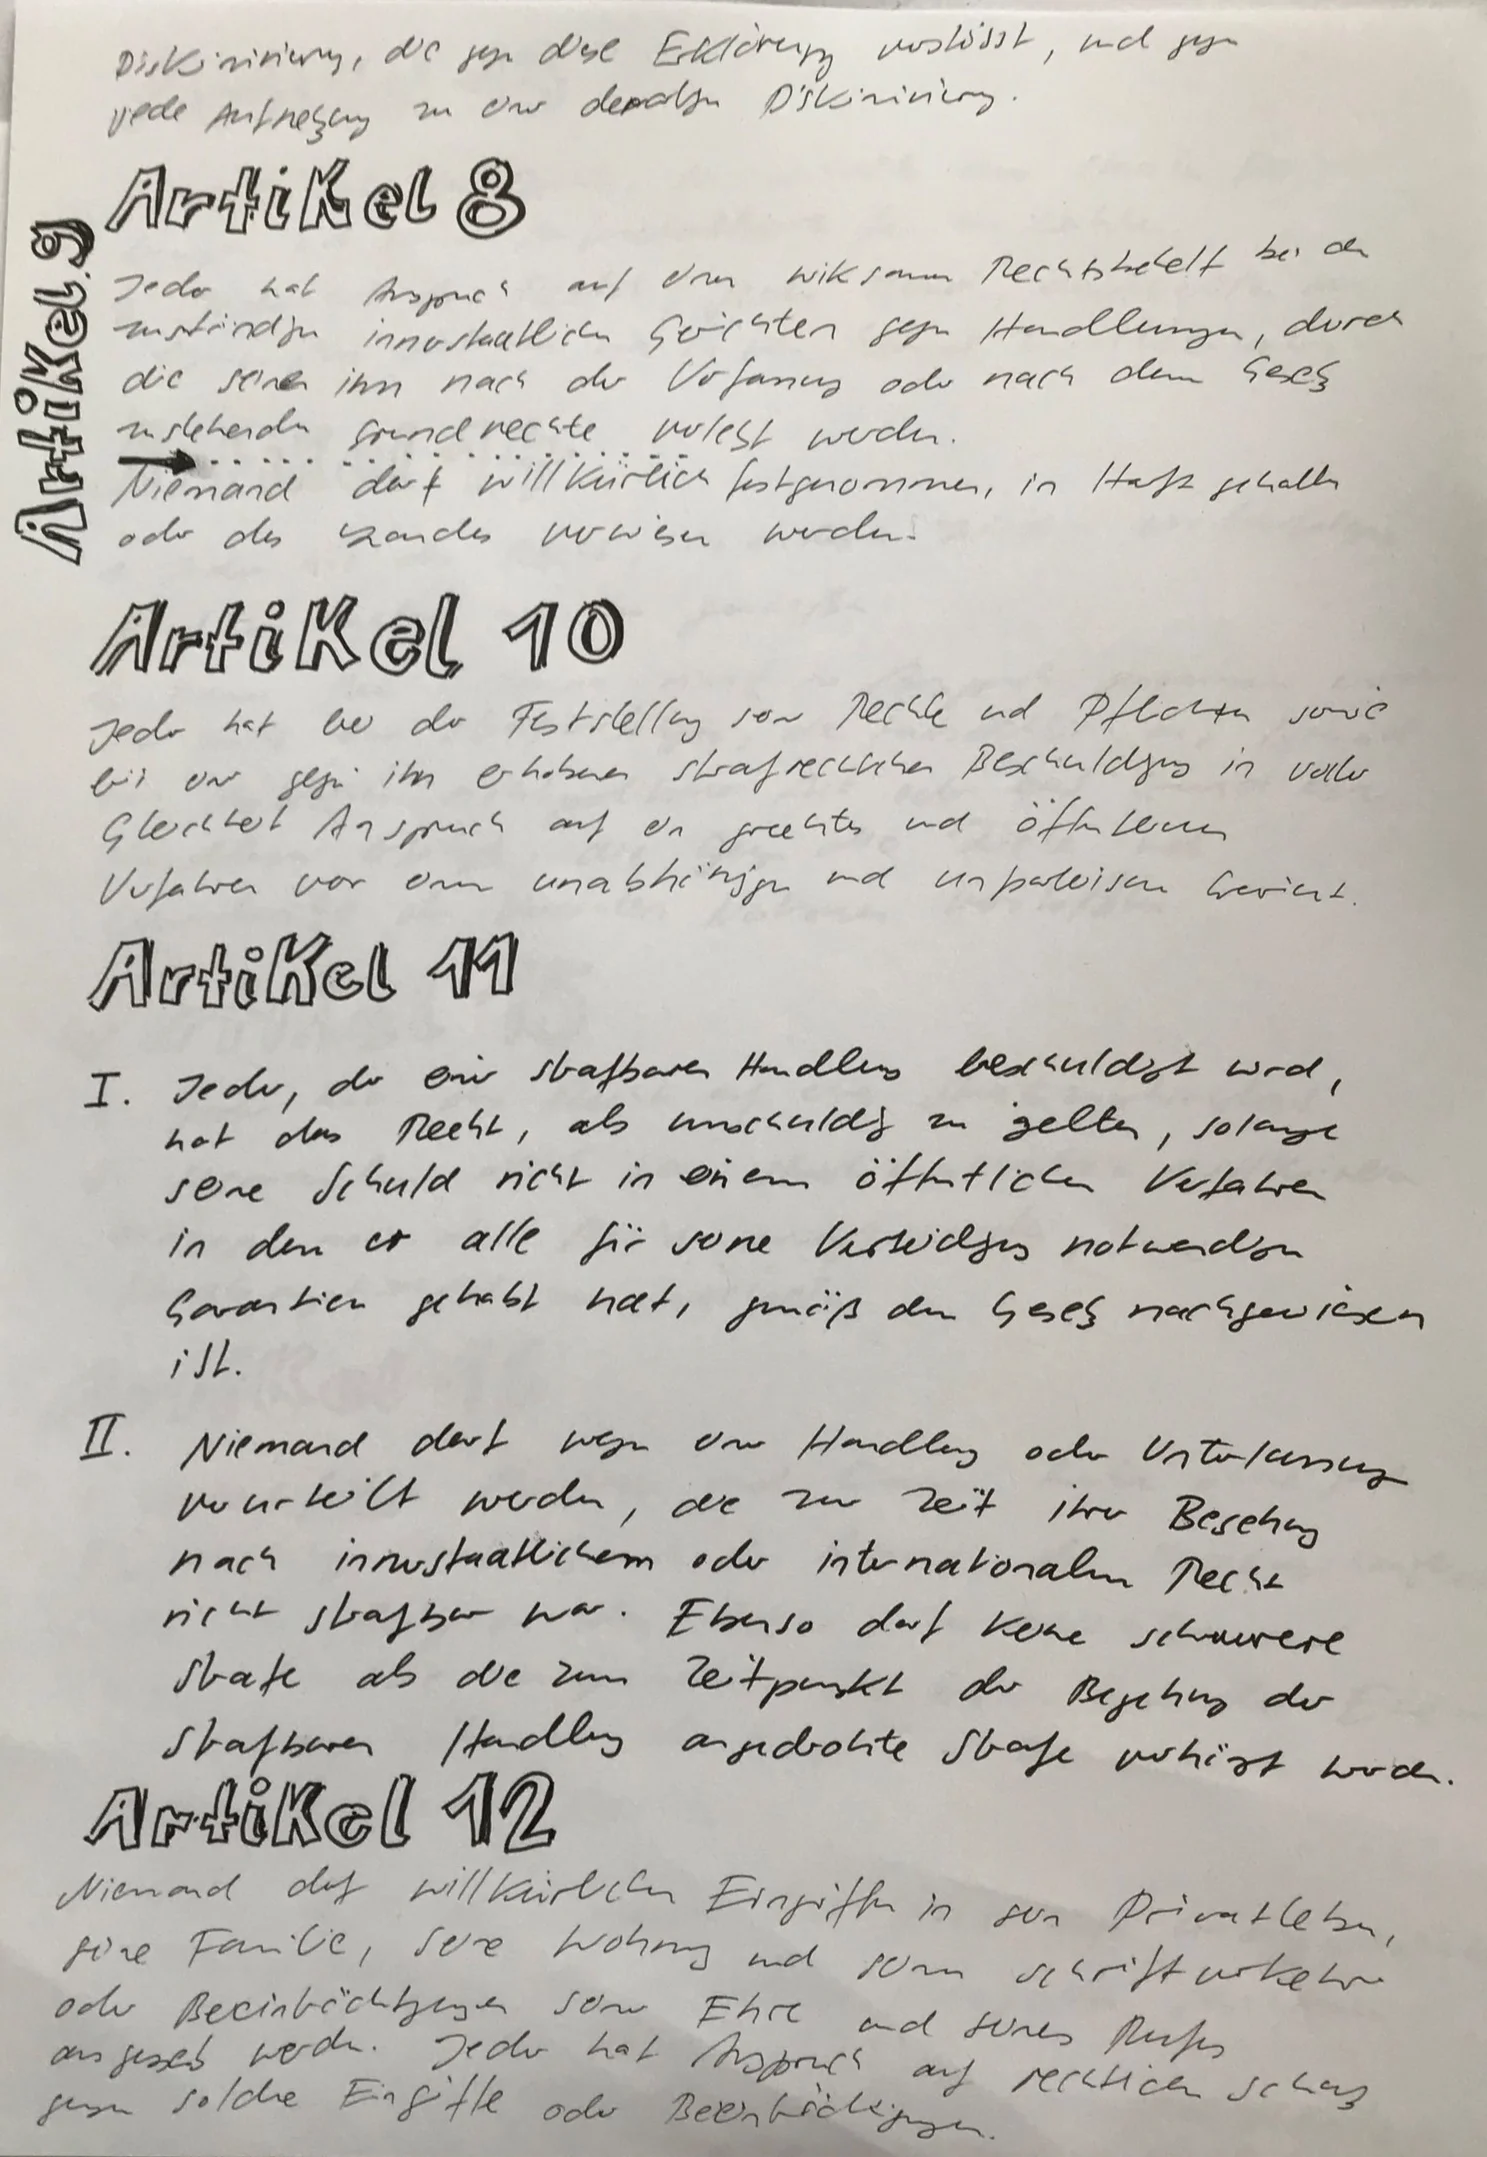 Diskriminierung, die gegen diese Erklärung verstösst, und gegen
jede Aufhetzung zu einer derartigen Diskriminierung.
Artikel 8
Jeder hat Anspruch auf einen wirksamen Rechtsbehelf bei den
zuständigen innerstaatlichen Gerichten gegen Handlungen, durch
die seine ihm nach der Verfassung oder nach dem Gesetz
zustehenden Grundrechte verletzt werden.
Artikel 9
Niemand darf willkürlich festgenommen, in Haft gehalten
oder des Landes verwiesen werden.
Artikel 10
Jeder hat bei der Feststellung seiner Rechte und Pflichten sowie
bei einer gegen ihn erhobenen strafrechtlichen Beschuldigung in voller
Gleichheit Anspruch auf ein gerechtes und öffentliches
Verfahren vor einem unabhängigen und unparteiischen Gericht.
Artikel 11
I. Jeder, der einer strafbaren Handlung beschuldigt wird,
hat das Recht, als unschuldig zu gelten, solange
seine Schuld nicht in einem öffentlichen Verfahren
in dem er alle für seine Verteidigung notwendigen
Garantien gehabt hat, gemäß dem Gesetz nachgewiesen
ist.
II. Niemand darf wegen einer Handlung oder Unterlassung
verurteilt werden, die zur Zeit ihrer Begehung
nach innerstaatlichem oder internationalem Recht
nicht strafbar war. Ebenso darf keine schwerere
Strafe als die zum Zeitpunkt der Begehung der
strafbaren Handlung angedrohte Strafe verhängt werden.
Artikel 12
Niemand darf willkürlichen Eingriffen in sein Privatleben,
seine Familie, seine Wohnung und seinen Schriftverkehr
oder Beeinträchtigungen seiner Ehre und seines Rufes
ausgesetzt werden. Jeder hat Anspruch auf rechtlichen Schutz
gegen solche Eingriffe oder Beeinträchtigungen.